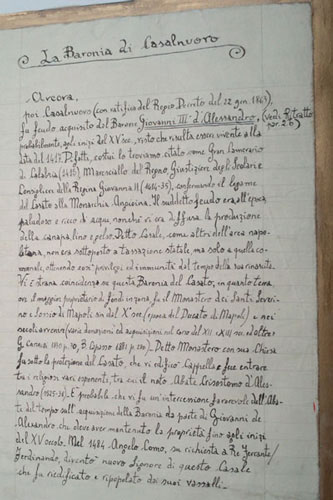 La Baronia di Casalnuovo
-Arcora,
poi Casalnuovo (con ratifica del Regio Decreto del 22 gen. 1863),
fu feudo acquisito dal Barone Giovanni III d'Alessandro, (vedi Ritratto
probabilmente, agli inizi del XV sec., visto che risulta essere vivente alla par. 26)
data del 1417. Difatti, costui lo troviamo citato come Gran Camerario
di Calabria (1416), Maresciallo del Regno, Giustiziere degli Scolari e
Consigliere della Regina Giovanna II (1414-35), confermando il legame
del Casato alla Monarchia Angioina. Il suddetto feudo era all'epoca
paludoso e ricco di acqua, nonché vi era diffusa la produzione
della canapa, lino e gelso. Detto Casale, come altri dell'area napo-
litana, era sottoposto a tassazione statale, ma solo a quella co-
munale, ottenendo così privilegi ed immunità del tempo della sua rinascita.
Vi è strana coincidenza su questa Baronia del Casato, in quanto tem
on il maggior proprietario di fondi in zona fu il Monastero dei Santi Severi-
no e Sossio di Napoli sin dal X° sec (epoca del Ducato di Napoli) e nei
secoli avvenire (varie donazioni ed acquisizioni nel corso del XII e XIII sec. ed altre
G. Cannas p. 10, P. Capasso 1881 p. ). Detto Monastero con sua Chiesa
fu sotto la protezione del Casato, che vi edificò Cappella e fece entrare
tra i religiosi vari esponenti, tra cui il noto Abate Crisostomo d'Ales-
sandro (1525-36). È probabile che vi fu un'intercessione favorevole dell'Aba-
te del tempo sull'acquisizione della Baronia da parte di Giovanni de
Alexandro che deve aver mantenuto la proprietà fino agli inizi
del XV secolo. Nel 1484 Angelo Como, su richiesta a Re Ferrante/
Ferdinando, diventò nuovo Signore di questo Casale
che fu riedificato e ripopolato dai suoi vassalli.-